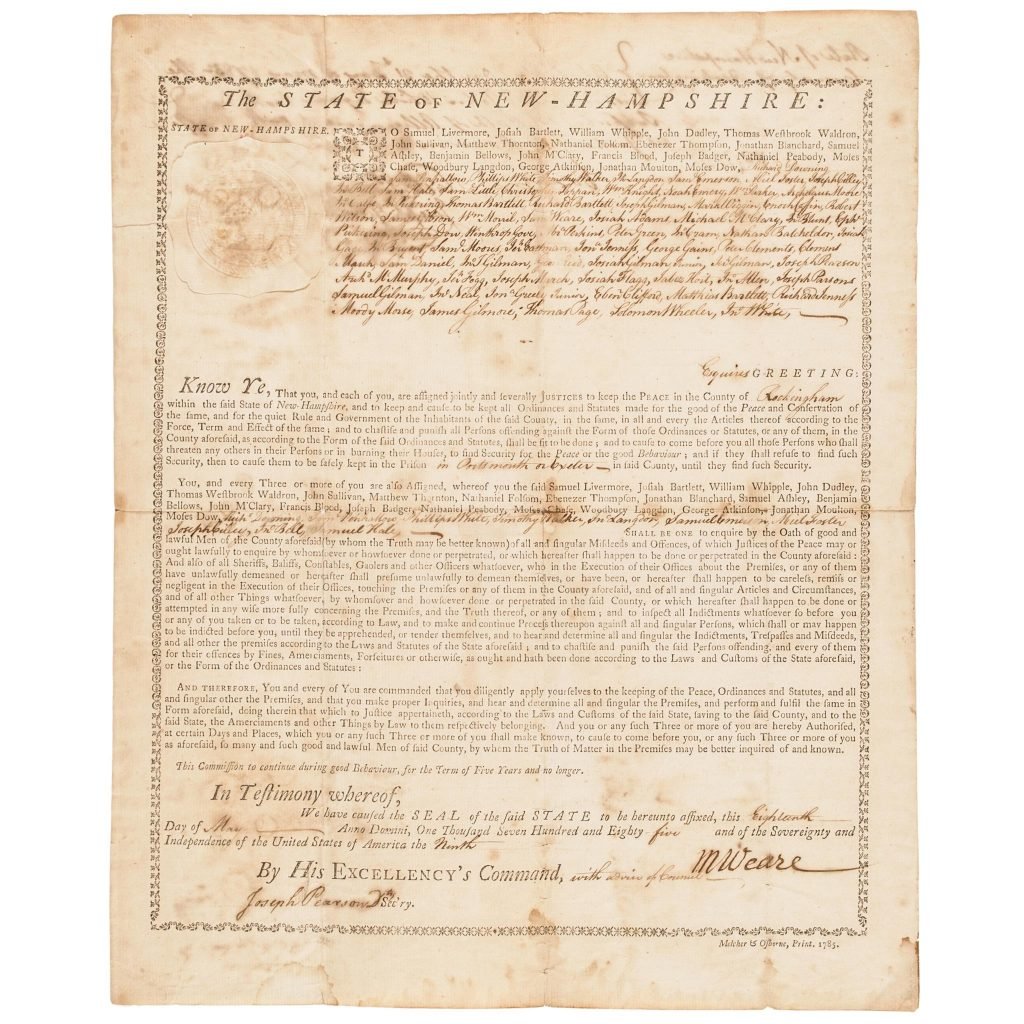 The STATE OF NEW-HAMPSHIRE:
STATE OF NEW-HAMPSHIRE.
TO Samuel Livermore, Josiah Bartlett, William Whipple, John Dudley, Thomas Westbrook Waldron,
John Sullivan, Matthew Thornton, Nathaniel Folsom, Ebenezer Thompson, Jonathan Blanchard, Samuel
Ashley, Benjamin Bellows, John M'Clary, Francis Blood, Joseph Badger, Nathaniel Peabody, Moses
Chase, Woodbury Langdon, George Atkinson, Jonathan Moulton, Moses Dow, Richard Downing
Phillips White Timothy Walker Jn Langdon Sam Emerson Abiel Foster Joseph Cilley
Jno Bell Sam Hale, Sam Little Wm Knight, Noah Emery, Wm Parker Archelaus Moore
Pickering Thomas Bartlett Richard Bartlett Joseph Gilman, Enoch Robert
Wilson, James Wm Morril, Sam Weare, Josiah Adams Michael McClary, Jno Blunt, Eph
Pickering, Joseph Dow, Winthrop Gove, Perkins, Peter Green, Jno Cram, Nathan Batchelder, Josiah
Gage Jno Bryent Saml Moores, Jno Eastman, Jonn Jenness, George Gains, Peter Clements, Clement
March, Sam Daniel, Jno Gilman, Geo Reid, Josiah Gilman Junior, Gilman, Joseph Pearson
Archd McMurphy, Jno Fogg, Joseph March, Josiah Flagg, Jabez Hoit, Jno Allen, Joseph Parsons
Samuel Gilman, Jno Neal, Jon Greely Junior, Eben Clifford, Matthias Bartlett, Richard Jenness
Moody Morse, James Gilmore, Thomas Page, Solomon Wheeler, Jno White,
Esquires GREETING:
Know Ye, That you, and each of you, are assigned jointly and severally JUSTICES to keep the PEACE in the County of Rockingham
within the said State of New-Hampshire, and to keep and cause to be kept all Ordinances and Statutes made for the good of the Peace and Conservation of
the same, and for the quiet Rule and Government of the Inhabitants of the said County, in the same, in all and every the Articles thereof according to the
Force, Term and Effect of the same; and to chastise and punish all Persons offending against the Form of those Ordinances or Statutes, or any of them, in the
County aforesaid, as according to the Form of the said Ordinances and Statutes, shall be fit to be done; and to cause to come before you all those Persons who shall
threaten any others in their Persons or in burning their Houses, to find Security for the Peace or the good Behaviour; and if they shall refuse to find such
Security, then to cause them to be safely kept in the Prison in Portsmouth or Exeter in said County, until they find such Security.
You, and every Three or more of you are also Assigned, whereof you the said Samuel Livermore, Josiah Bartlett, William Whipple, John Dudley,
Thomas Westbrook Waldron, John Sullivan, Matthew Thornton, Nathaniel Folsom, Ebenezer Thompson, Jonathan Blanchard, Samuel Ashley, Benjamin
Bellows, John M'Clary, Francis Blood, Joseph Badger, Nathaniel Peabody, Moses Chase, Woodbury Langdon, George Atkinson, Jonathan Moulton,
Moses Dow, Richd Downing Sam Penhallow Phillips White, Timothy Walker, Jn Langdon, Samuel Emerson Abiel Foster
Joseph Cilley, Jno Bell, Samuel Hale, SHALL BE ONE to enquire by the Oath of good and
lawful Men of the County aforesaid (by whom the Truth may be better known) of all and singular Misdeeds and Offences, of which Justices of the Peace may or
ought lawfully to enquire by whomsoever or howsoever done or perpetrated, or which hereafter shall happen to be done or perpetrated in the County aforesaid:
And also of all Sheriffs, Baliffs, Constables, Gaolers and other Officers whatsoever, who in the Execution of their Offices about the Premises, or any of them
have unlawfully demeaned or hereafter shall presume unlawfully to demean themselves, or have been, or hereafter shall happen to be careless, remiss or
negligent in the Execution of their Offices, touching the Premises or any of them in the County aforesaid, and of all and singular Articles and Circumstances,
and of all other Things whatsoever, by whomsoever and howsoever done or perpetrated in the said County, or which hereafter shall happen to be done or
attempted in any wise more fully concerning the Premises, and the Truth thereof, or any of them; and to inspect all Indictments whatsoever so before you
or any of you taken or to be taken, according to Law, and to make and continue Process thereupon against all and singular Persons, which shall or may happen
to be indicted before you, until they be apprehended, or render themselves, and to hear and determine all and singular the Indictments, Trespasses and Misdeeds,
and all other the premises according to the Laws and Statutes of the State aforesaid; and to chastise and punish the said Persons offending, and every of them
for their offences by Fines, Amerciaments, Forfeitures or otherwise, as ought and hath been done according to the Laws and Customs of the State aforesaid,
or the Form of the Ordinances and Statutes:
AND THEREFORE, You and every of You are commanded that you diligently apply yourselves to the keeping of the Peace, Ordinances and Statutes, and all
and singular other the Premises, and that you make proper Inquiries, and hear and determine all and singular the Premises, and perform and fulfil the same in
Form aforesaid, doing therein that which to Justice appertaineth, according to the Laws and Customs of the said State, saving to the said County, and to the
said State, the Amerciaments and other Things by Law to them respectively belonging. And you or any such Three or more of you are hereby Authorised,
at certain Days and Places, which you or any such Three or more of you shall make known, to cause to come before you, or any such Three or more of you
as aforesaid, so many and such good and lawful Men of said County, by whom the Truth of Matter in the Premises may be better inquired of and known.
This Commission to continue during good Behaviour, for the Term of Five Years and no longer.
In Testimony whereof,
We have caused the SEAL of the said STATE to be hereunto affixed, this Eighteenth
Day of May Anno Domini, One Thousand Seven Hundred and Eighty five and of the Sovereignty and
Independence of the United States of America the Ninth
By His EXCELLENCY's Command, with advice of Council MWeare
Joseph Pearson Dy Sec'ry.
Melcher & Osborne, Print. 1785.